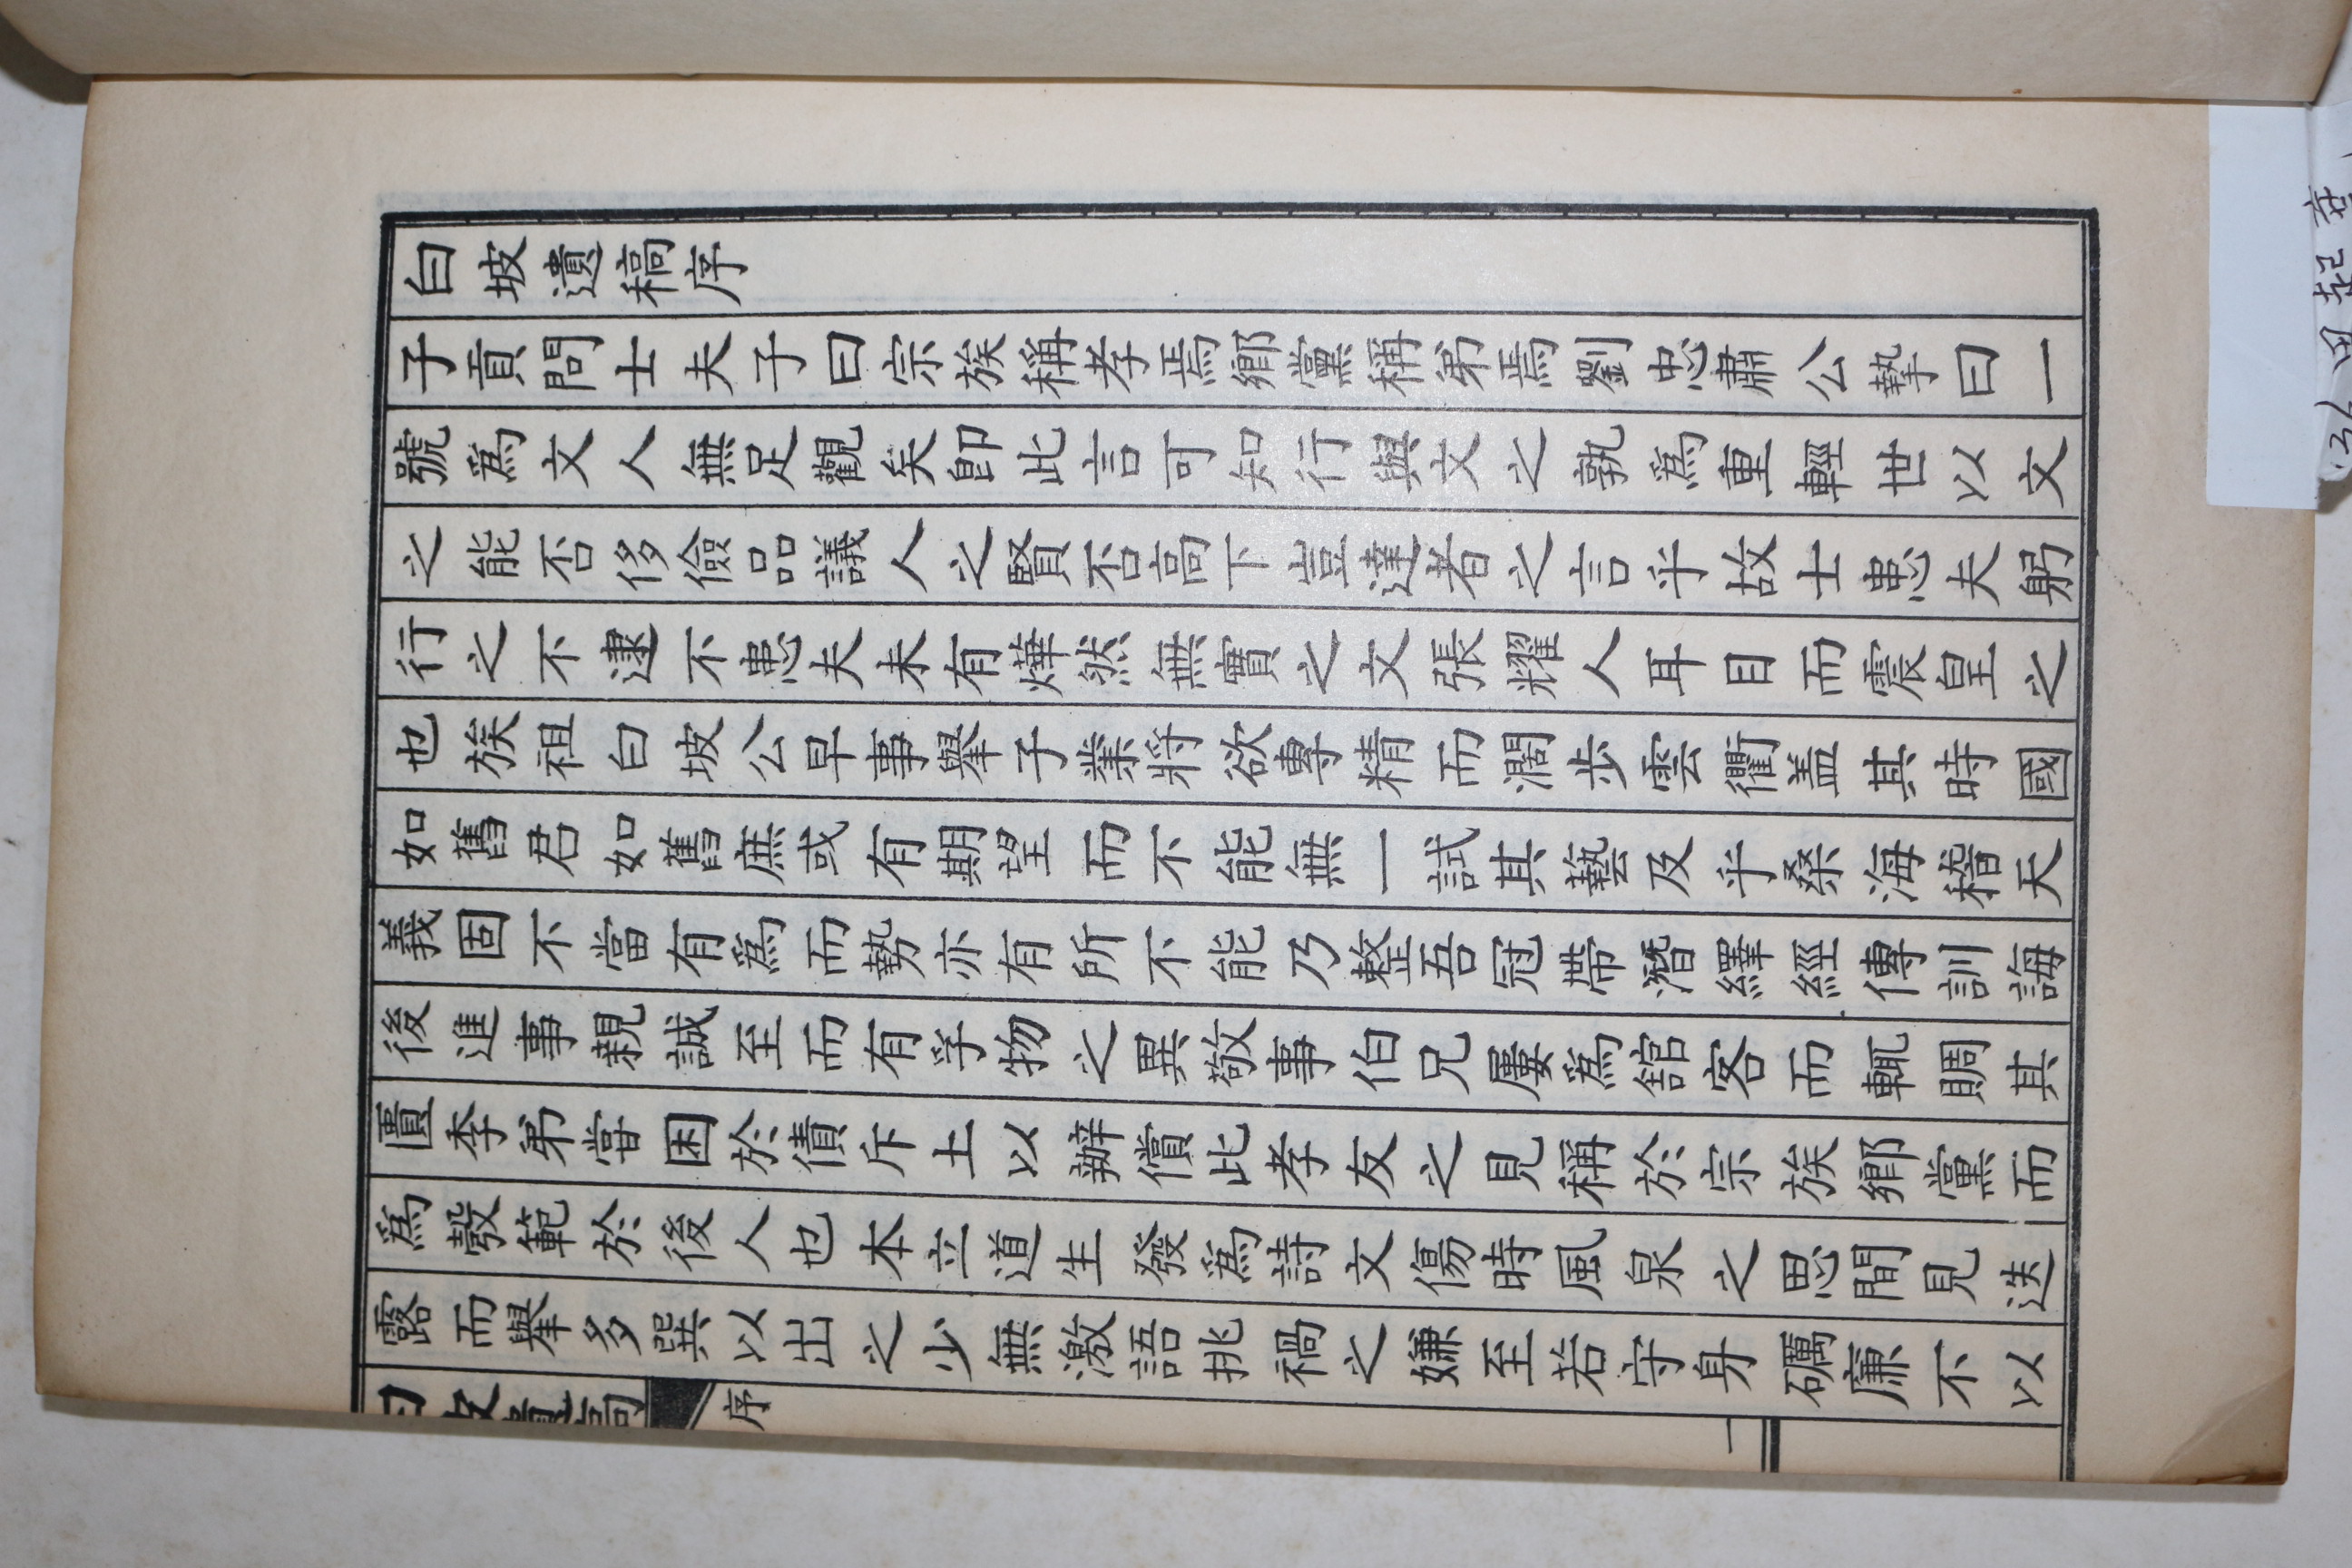 白坡遺稿序
子貢問士夫子曰宗族稱孝焉鄕黨稱弟焉劉忠肅公摯曰一
號爲文人無足觀矣卽此言可知行與文之孰爲重輕世以文
之能否侈儉品議人之賢否高下豈達者之言乎故士患夫躬
行之不逮不患夫未有燁然無實之文張耀人耳目而震皇之
也族祖白坡公早事擧子業將欲專精而濶步雲衢盖其時國
如舊君如舊庶或有期望而不能無一試其藝及乎桑海稽天
義固不當有爲而勢亦有所不能乃整吾冠帶潛繹經傳訓誨
後進事親誠至而有孚物之異敬事伯兄屢爲舘客而輒賙其
匱季弟嘗困於債斥土以辦償此孝友之見稱於宗族鄕黨而
爲彀範於後人也本立道生發爲詩文傷時風泉之思間見迭
露而擧多巽以出之少無激語挑禍之嫌至若守身礪廉不以
白坡遺稿
序
一